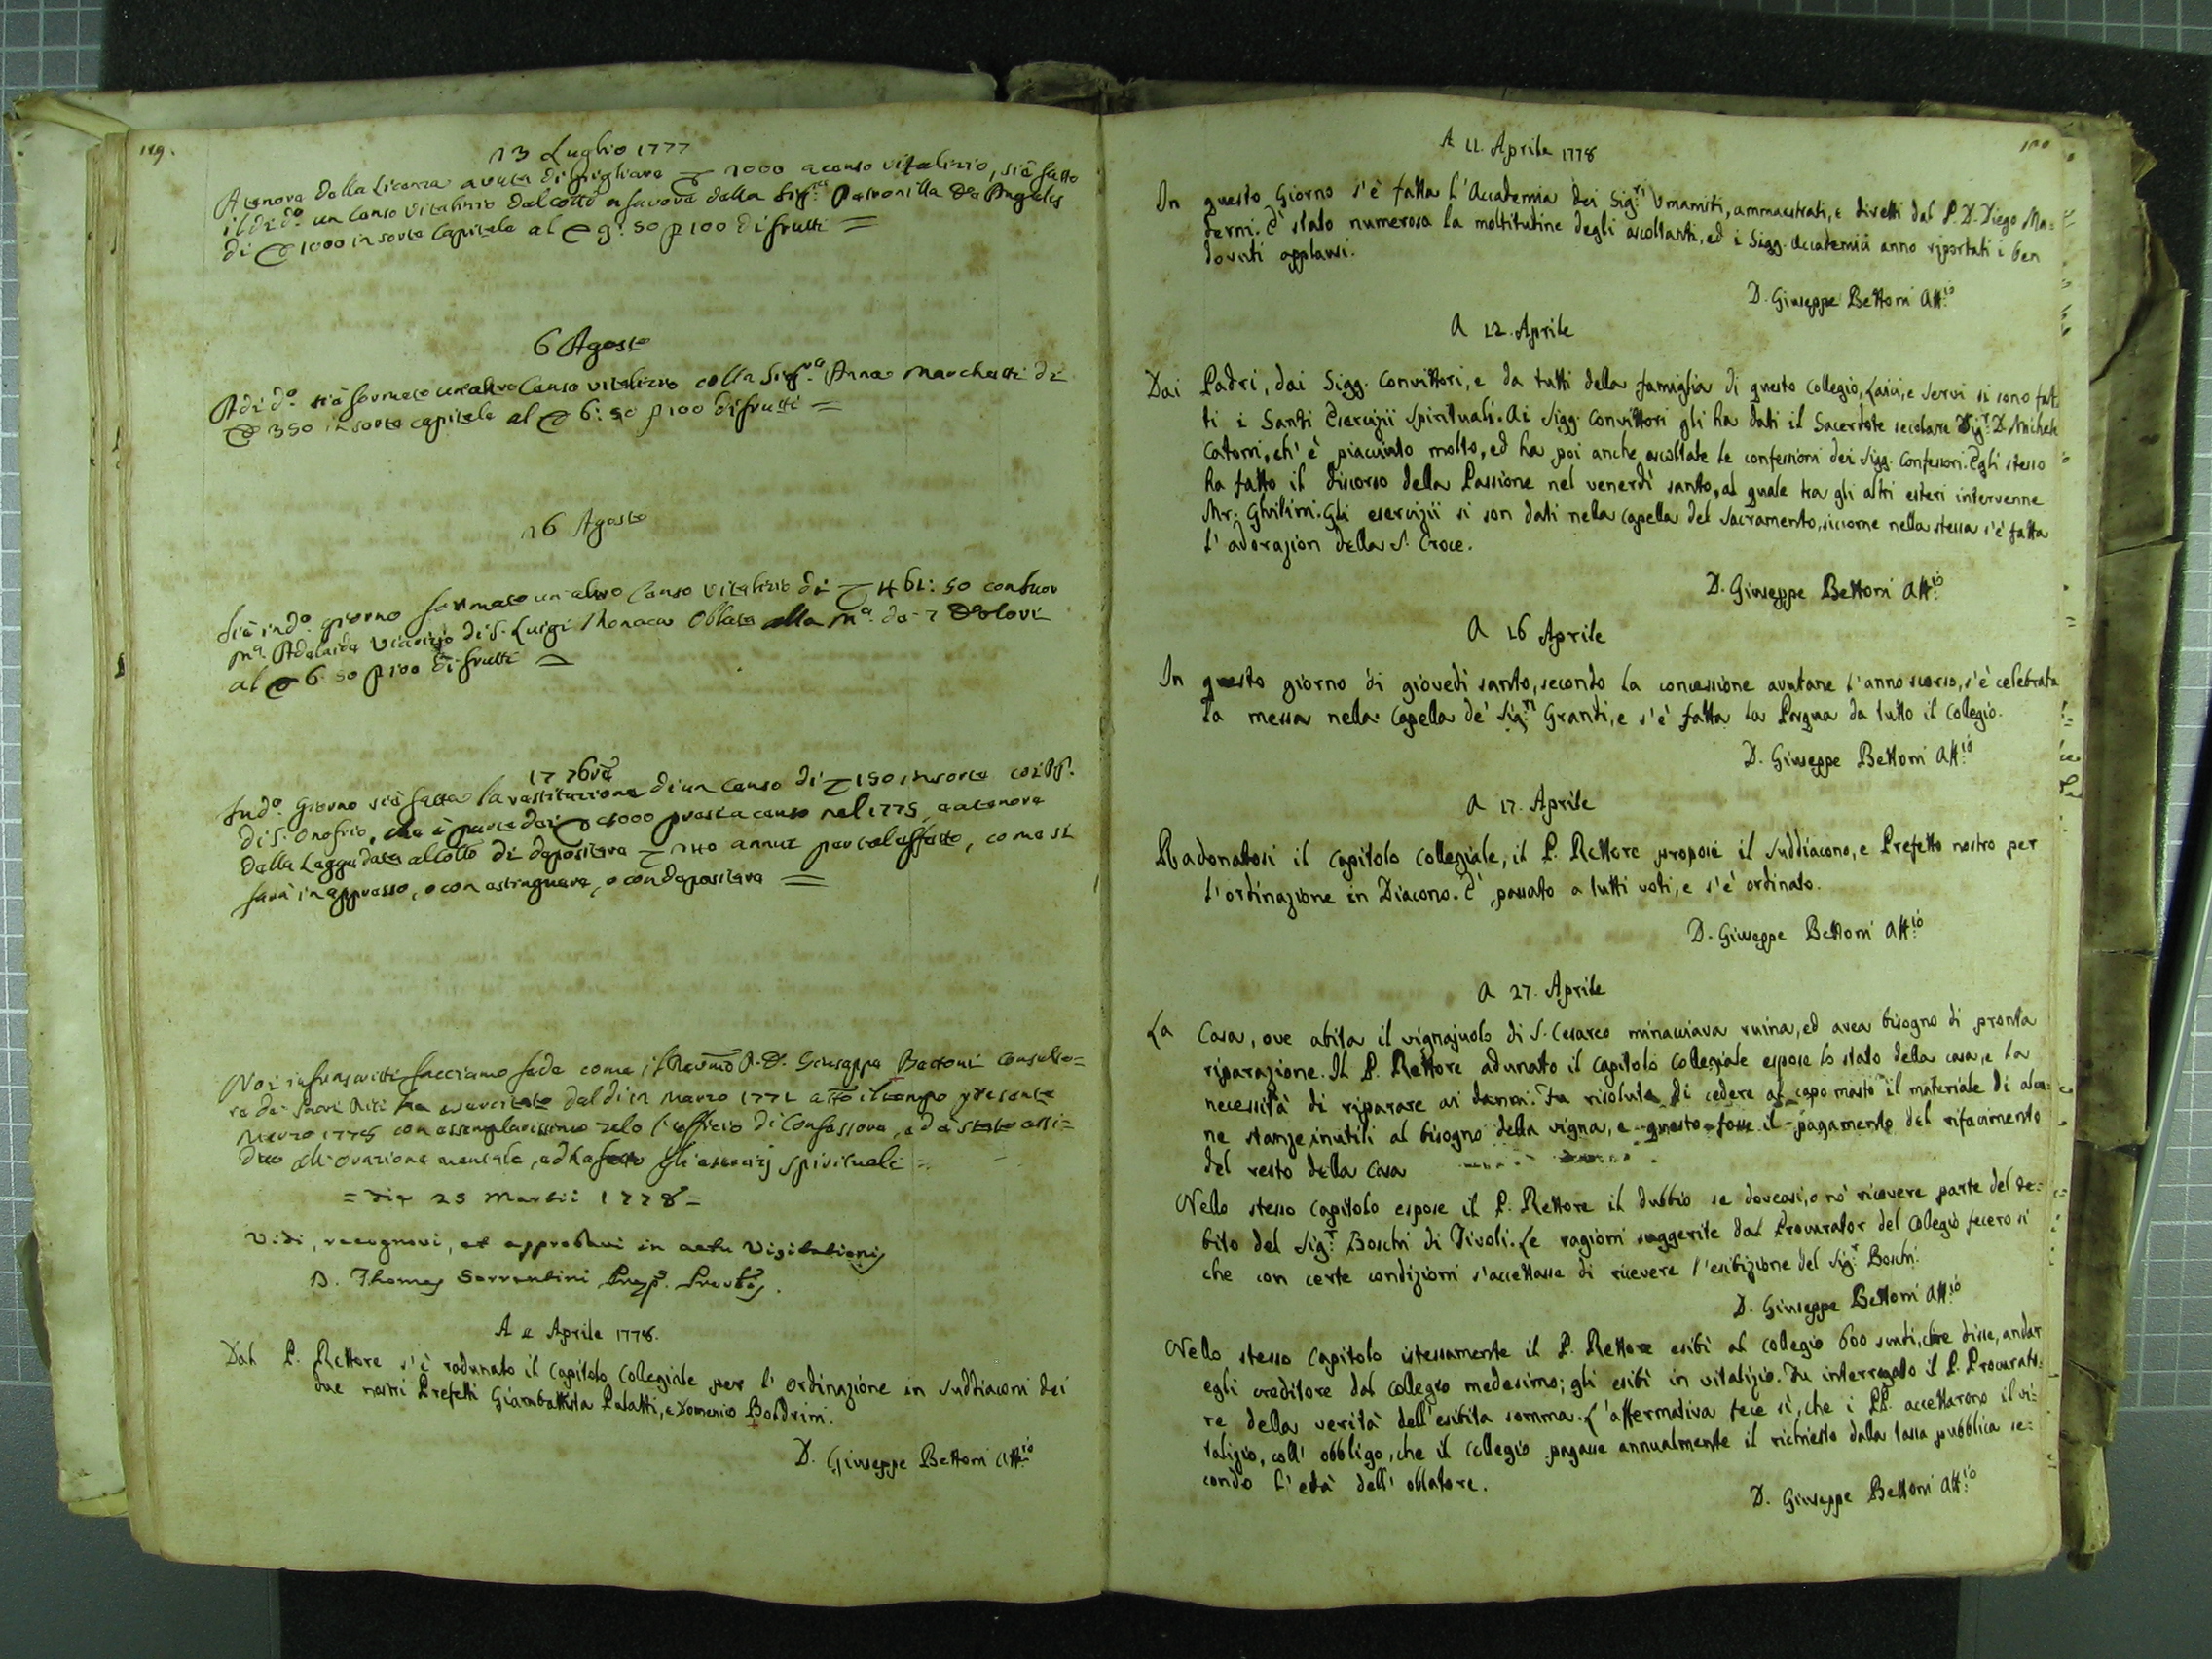 189.
13 Luglio 1777
A tenore della Licenza avuta di pigliare 1000 a censo vitalizio, si è fatto
il di d.º un Censo Vitalizio dal Coll.º a favore della Sig.ra Petronilla De Angelis
di 1000 in sorte Capitale al 9: 50 p 100 di frutti =
6 Agosto
A di d.º si è formato un altro Censo vitalizio colla Sig.ra Anna Marchetti di
350 in sorte capitale al 6: 50 p 100 di frutti =
16 Agosto
Si è in d.º giorno formato un altro Censo Vitalizio di 461: 50 con Suor
M.a Adelaide di S. Luigi Monaca Oblata alla M.a de 7 Dolori
al 6. 50 p 100 di frutti =
In d.º Giorno si è fatta la restituzione di un Censo di 150 in sorte coi PP.
di S. Onofrio, che è parte dei presi a censo nel 1775, e a tenore
della Legge data al Coll.º di depositare 240 annui per tal effetto, come si
farà in appresso, o con estinguere, o con depositare =
Noi infrascritti facciamo fede come il Rev.mo P. D. Giuseppe Bettoni Consulto=
re de' Sacri Riti ha esercitato dal di Marzo 1772 a tt.o il tempo presente
Marzo 1778 con esemplarissimo zelo l'officio di Confessore, ed è stato assi=
duo all'Orazione mentale, ed ha fatto gli esercizj Spirituali =
= Die 25 Martii 1778 =
Vidi, recognovi, et approbavi in actu Visitationis
D. Thomas Sorrentini
A 2 Aprile 1778.
Dal P. Rettore s'è radunato il Capitolo Collegiale per l'Ordinazione in Suddiaconi dei
due nostri Prefetti Giambattista Palatti, e Domenico Boldrini.
D. Giuseppe Bettoni Att.io
A 11. Aprile 1778
In questo Giorno s'è fatta l'Accademia dei Sig.ri Umanisti, ammaestrati, e diretti dal P. D. Diego Ma=
terni. È stato numerosa la moltitudine degli ascoltanti, ed i Sigg. Accademici anno riportati i ben
dovuti applausi.
D. Giuseppe Bettoni Att.io
A 12. Aprile
Dai Padri, dai Sigg. Convittori, e da tutti della famiglia di questo collegio, Laici, e Servi si sono fat
ti i Santi Esercizii Spirituali. Ai Sigg. Convittori gli ha dati il Sacerdote secolare Sig.r D. Michele
Catoni, ch'è piaciuto molto, ed ha poi anche ascoltate le confessioni dei Sigg. Confessori. Egli stesso
ha fatto il discorso della Passione nel venerdì santo, al quale tra gli altri esteri intervenne
Mr. Ghilini. Gli esercizii si son dati nela capella del Sacramento, siccome nella stessa s'è fatta
l'adorazion della S. Croce.
D. Giuseppe Bettoni Att.io
A 16 Aprile
In questo giorno di giovedì santo, secondo la concessione avutane l'anno scorso, s'è celebrata
la messa nella Capella de' Sig.ri Grandi, e s'è fatta la Pasqua da tutto il Collegio.
D. Giuseppe Bettoni Att.io
A 17. Aprile
Radonatosi il Capitolo Collegiale, il P. Rettore propose il Suddiacono, e Prefetto nostro per
l'ordinazione in Diacono. È passato a tutti voti, e s'è ordinato.
D. Giuseppe Bettoni Att.io
A 27. Aprile
La Casa, ove abita il vignajuolo di S. Cesareo minacciava ruina, ed avea bisogno di pronta
riparazione. Il P. Rettore adunato il Capitolo Collegiale espose lo stato della casa, e la
necessità di riparare ai danni. Fu risoluto di cedere al capo mastro il materiale di alcu=
ne stanze inutili al bisogno della vigna, e questo fosse il pagamento del rifacimento
del resto della Casa
Nello stesso Capitolo espose il P. Rettore il dubbio se doveasi, o nò ricevere parte del de=
bito del Sig.r Boschi di Tivoli. Le ragioni suggerite dal Procurator del Collegio fecero sì
che con certe condizioni s'accettasse di ricevere l'esibizione del Sig.r Boschi.
D. Giuseppe Bettoni Att.io
Nello stesso Capitolo istessamente il P. Rettore esibì al collegio 600 scudi, che disse, andar
egli creditore dal collegio medesimo; gli esibì in vitalizio. Fu interrogato il P. Procurato=
re della verità dell'esibita somma. L'affermativa fece sì, che i PP. accettarono il vi=
talizio, coll'obbligo, che il Collegio pagasse annualmente il richiesto dalla tassa pubblica se=
condo l'età dell'oblatore.
D. Giuseppe Bettoni Att.io